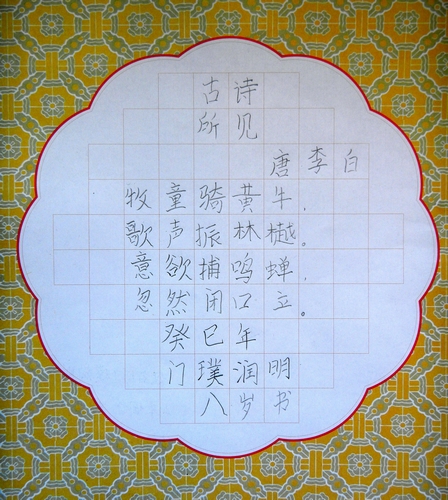 古诗
所见
唐 李 白
牧童骑黄牛,
歌声振林樾。
意欲捕鸣蝉,
忽然闭口立。
癸巳年
门璞润明
八岁书